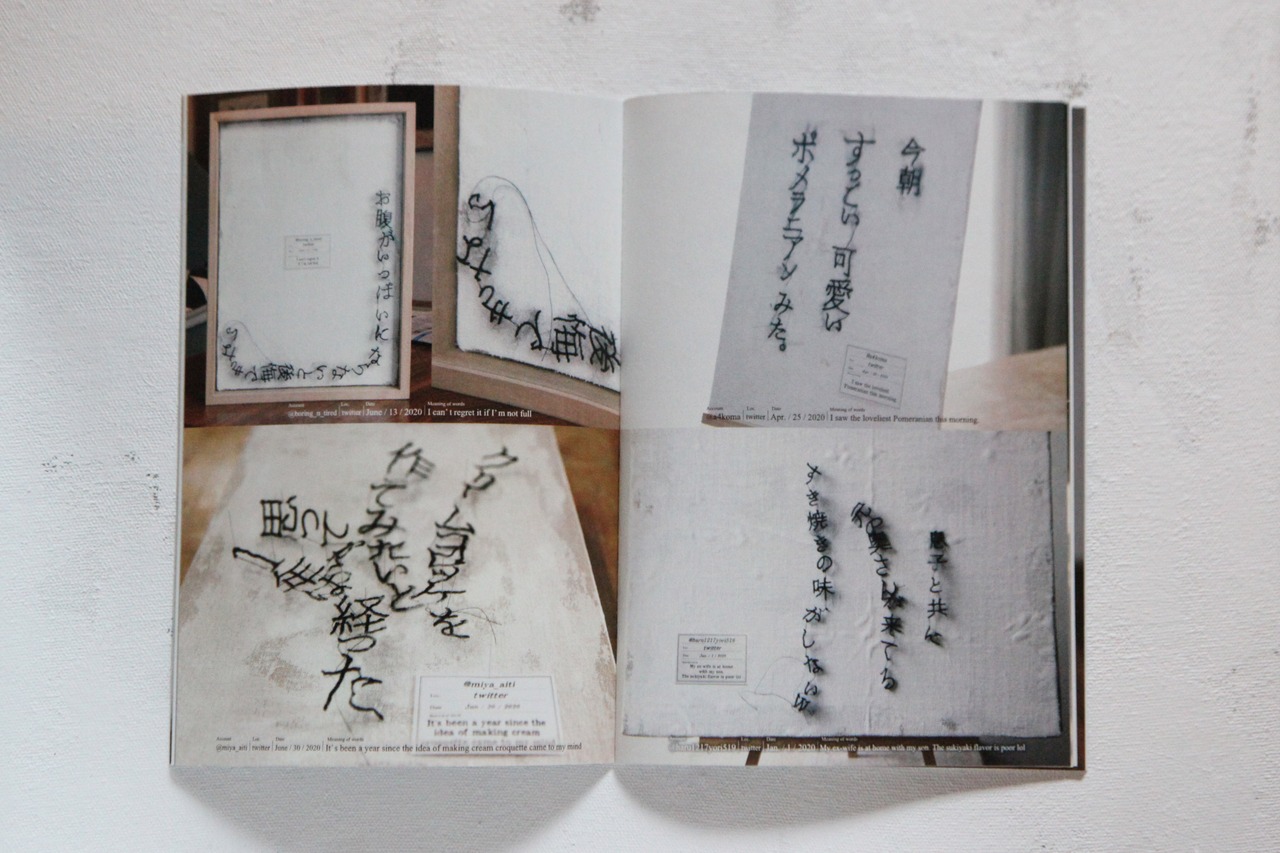 お腹がいっぱいんな
らないと後悔でき
ないから
Account
Loc.
Date
Meaning of words
@boring_n_tired twitter June / 13 / 2020 I can't regret it if I'm not full
後悔できな
今朝
すっごい可愛い
ポメラニアンみた。
twitter
I saw the loveliest
Pomeranian this morning
twitter Apr. / 25 / 2020 I saw the loveliest Pomeranian this morning
クリームコロッケを
作てみたいと
思って
一年が
経った
@miya_aiti
twitter
Jun / 30 / 2020
It's been a year since the
idea of making cream
@miya_aiti twitter June / 30 / 2020 It's been a year since the idea of making cream croquette came to my mind
息子と共に
奥さんが来てる
すき焼きの味がしない
twitter
My ex-wife is at home
with my son.
The sukiyaki flavor is poor lol
twitter Jan. / 1 / 2020 My ex-wife is at home with my son. The sukiyaki flavor is poor lol